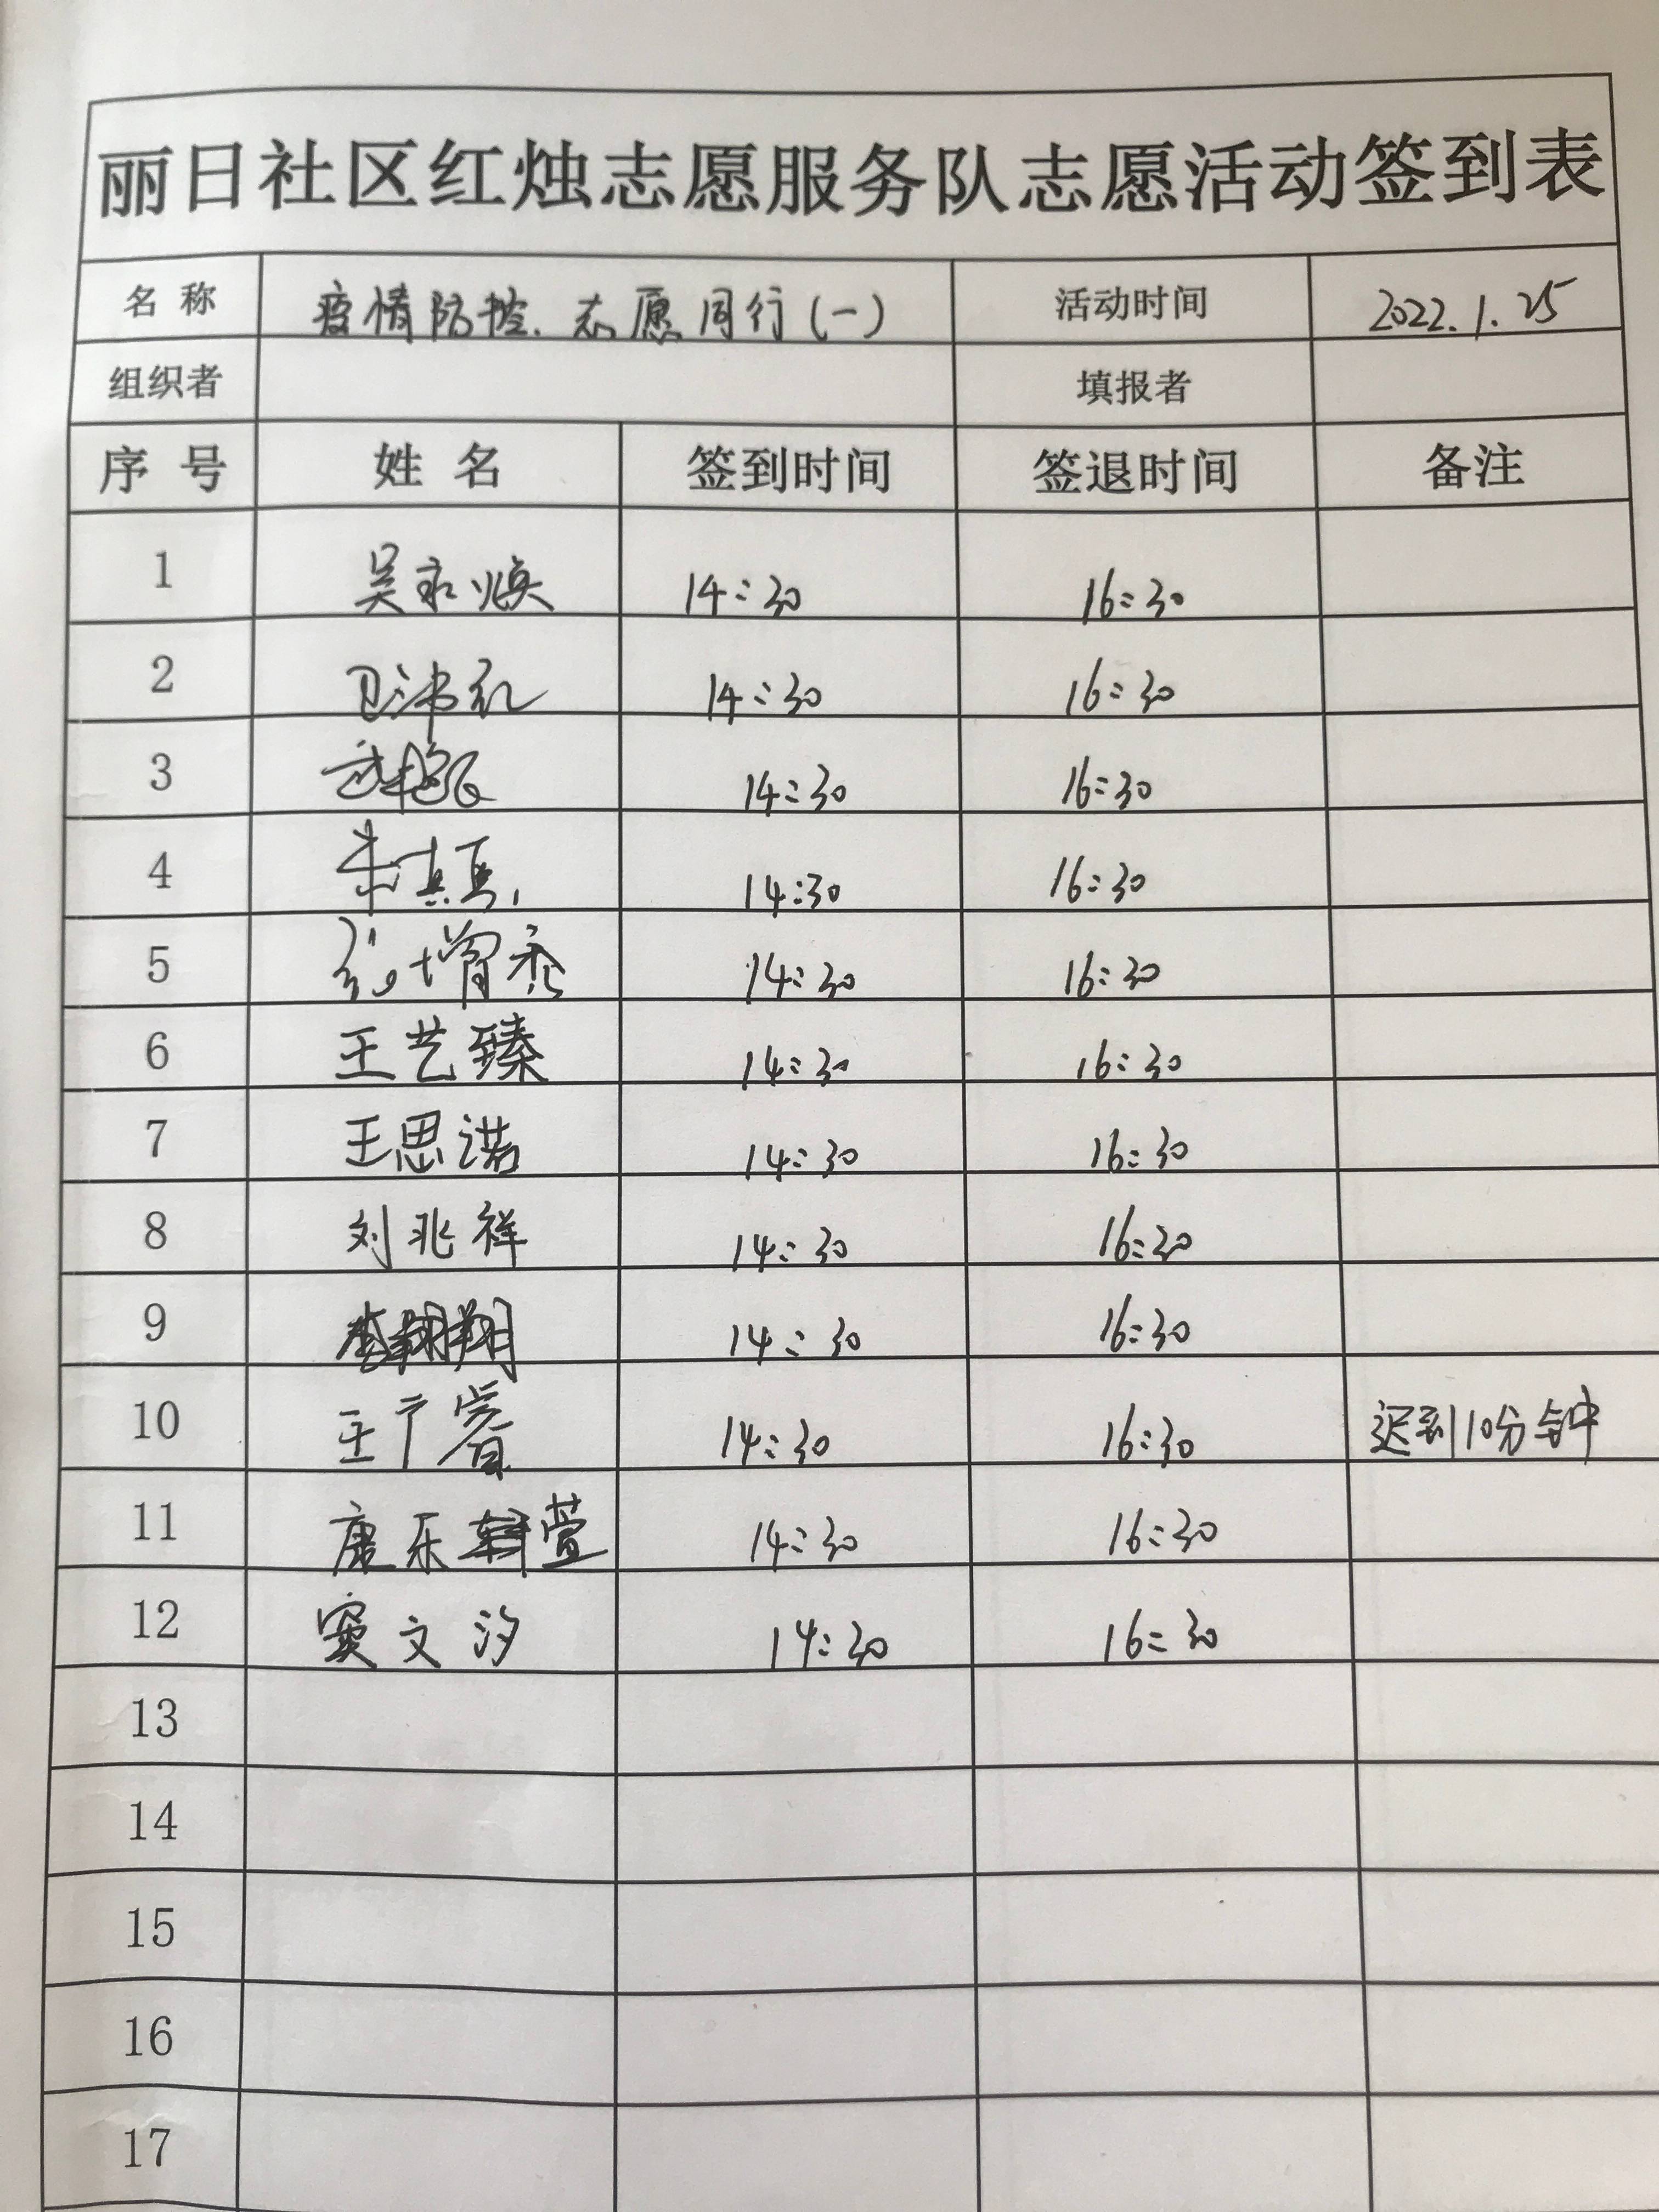 丽日社区红烛志愿服务队志愿活动签到表
名 称 疫情防控、志愿同行(一) 活动时间 2022.1.25
组织者 填报者
序 号 姓 名 签到时间 签退时间 备注
1 吴永焕 14:30 16:30
2 14:30 16:30
3 14:30 16:30
4 14:30 16:30
5 14:30 16:30
6 王艺臻 14:30 16:30
7 王思诺 14:30 16:30
8 刘兆祥 14:30 16:30
9 14:30 16:30
10 14:30 16:30 迟到10分钟
11 康乐萱 14:30 16:30
12 窦文汐 14:30 16:30
13
14
15
16
17